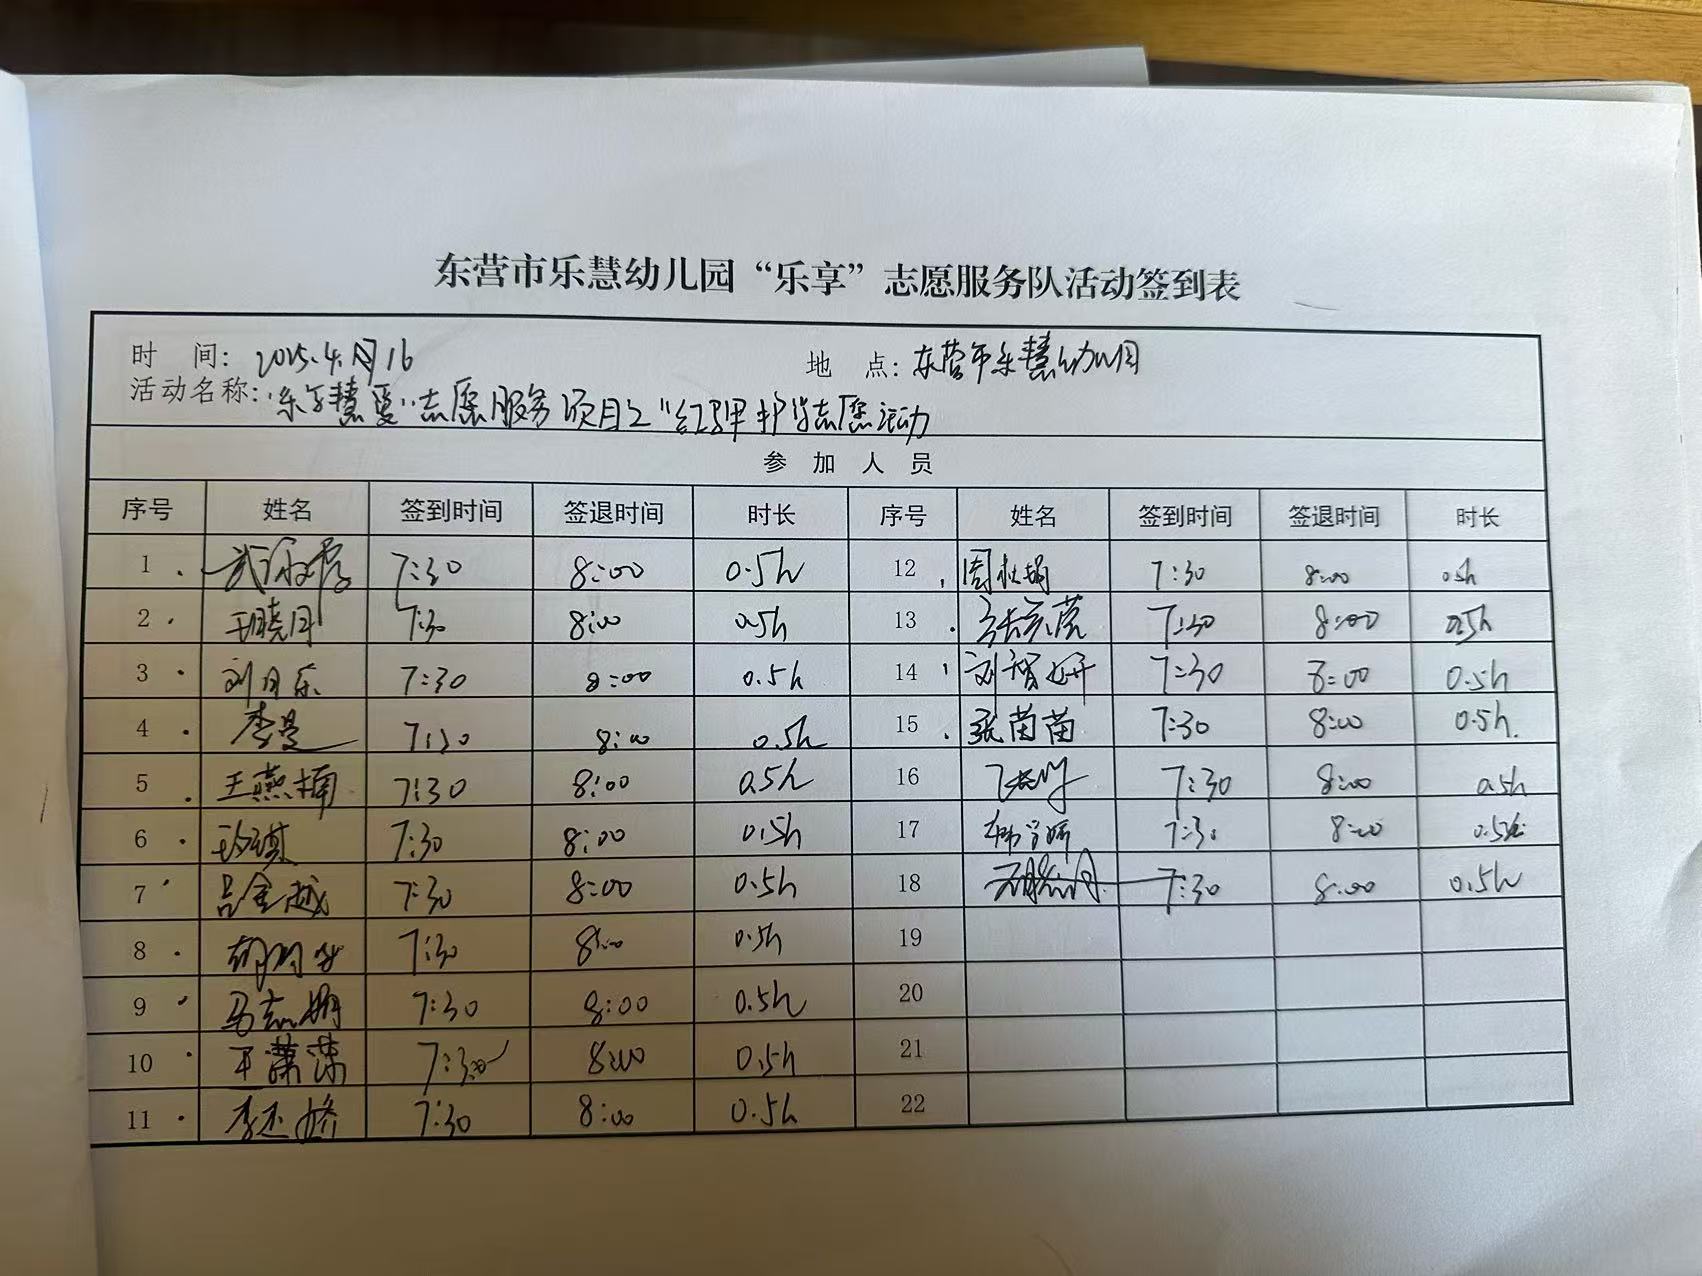 东营市乐慧幼儿园“乐享”志愿服务队活动签到表
时 间: 2025.4.月16 地 点: 东营市乐慧幼儿园
活动名称: 志愿服务项目之“红马甲护学志愿活动
参 加 人 员
序号 姓名 签到时间 签退时间 时长 序号 姓名 签到时间 签退时间 时长
1 7:30 8:00 0.5h 12 7:30 8:00 0.5h
2 王晓丹 7:30 8:00 0.5h 13 7:30 8:00 0.5h
3 刘月乐 7:30 8:00 0.5h 14 刘智妍 7:30 8:00 0.5h
4 李曼 7:30 8:00 0.5h 15 张苗苗 7:30 8:00 0.5h.
5 王燕楠 7:30 8:00 0.5h 16 7:30 8:00 0.5h
6 7:30 8:00 0.5h 17 7:30 8:00 0.5h
7 吕金越 7:30 8:00 0.5h 18 7:30 8:00 0.5h
8 7:30 8:00 0.5h 19
9 7:30 8:00 0.5h 20
10 王潇潇 7:30 8:00 0.5h 21
11 7:30 8:00 0.5h 22